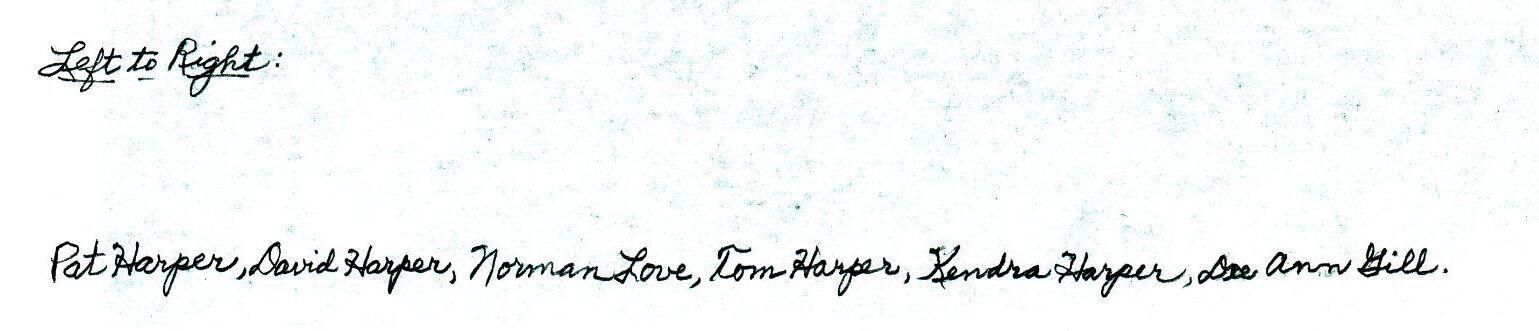 Left to Right:
Pat Harper, David Harper, Norman Love, Tom Harper, Kendra Harper, Dee Ann Gill.